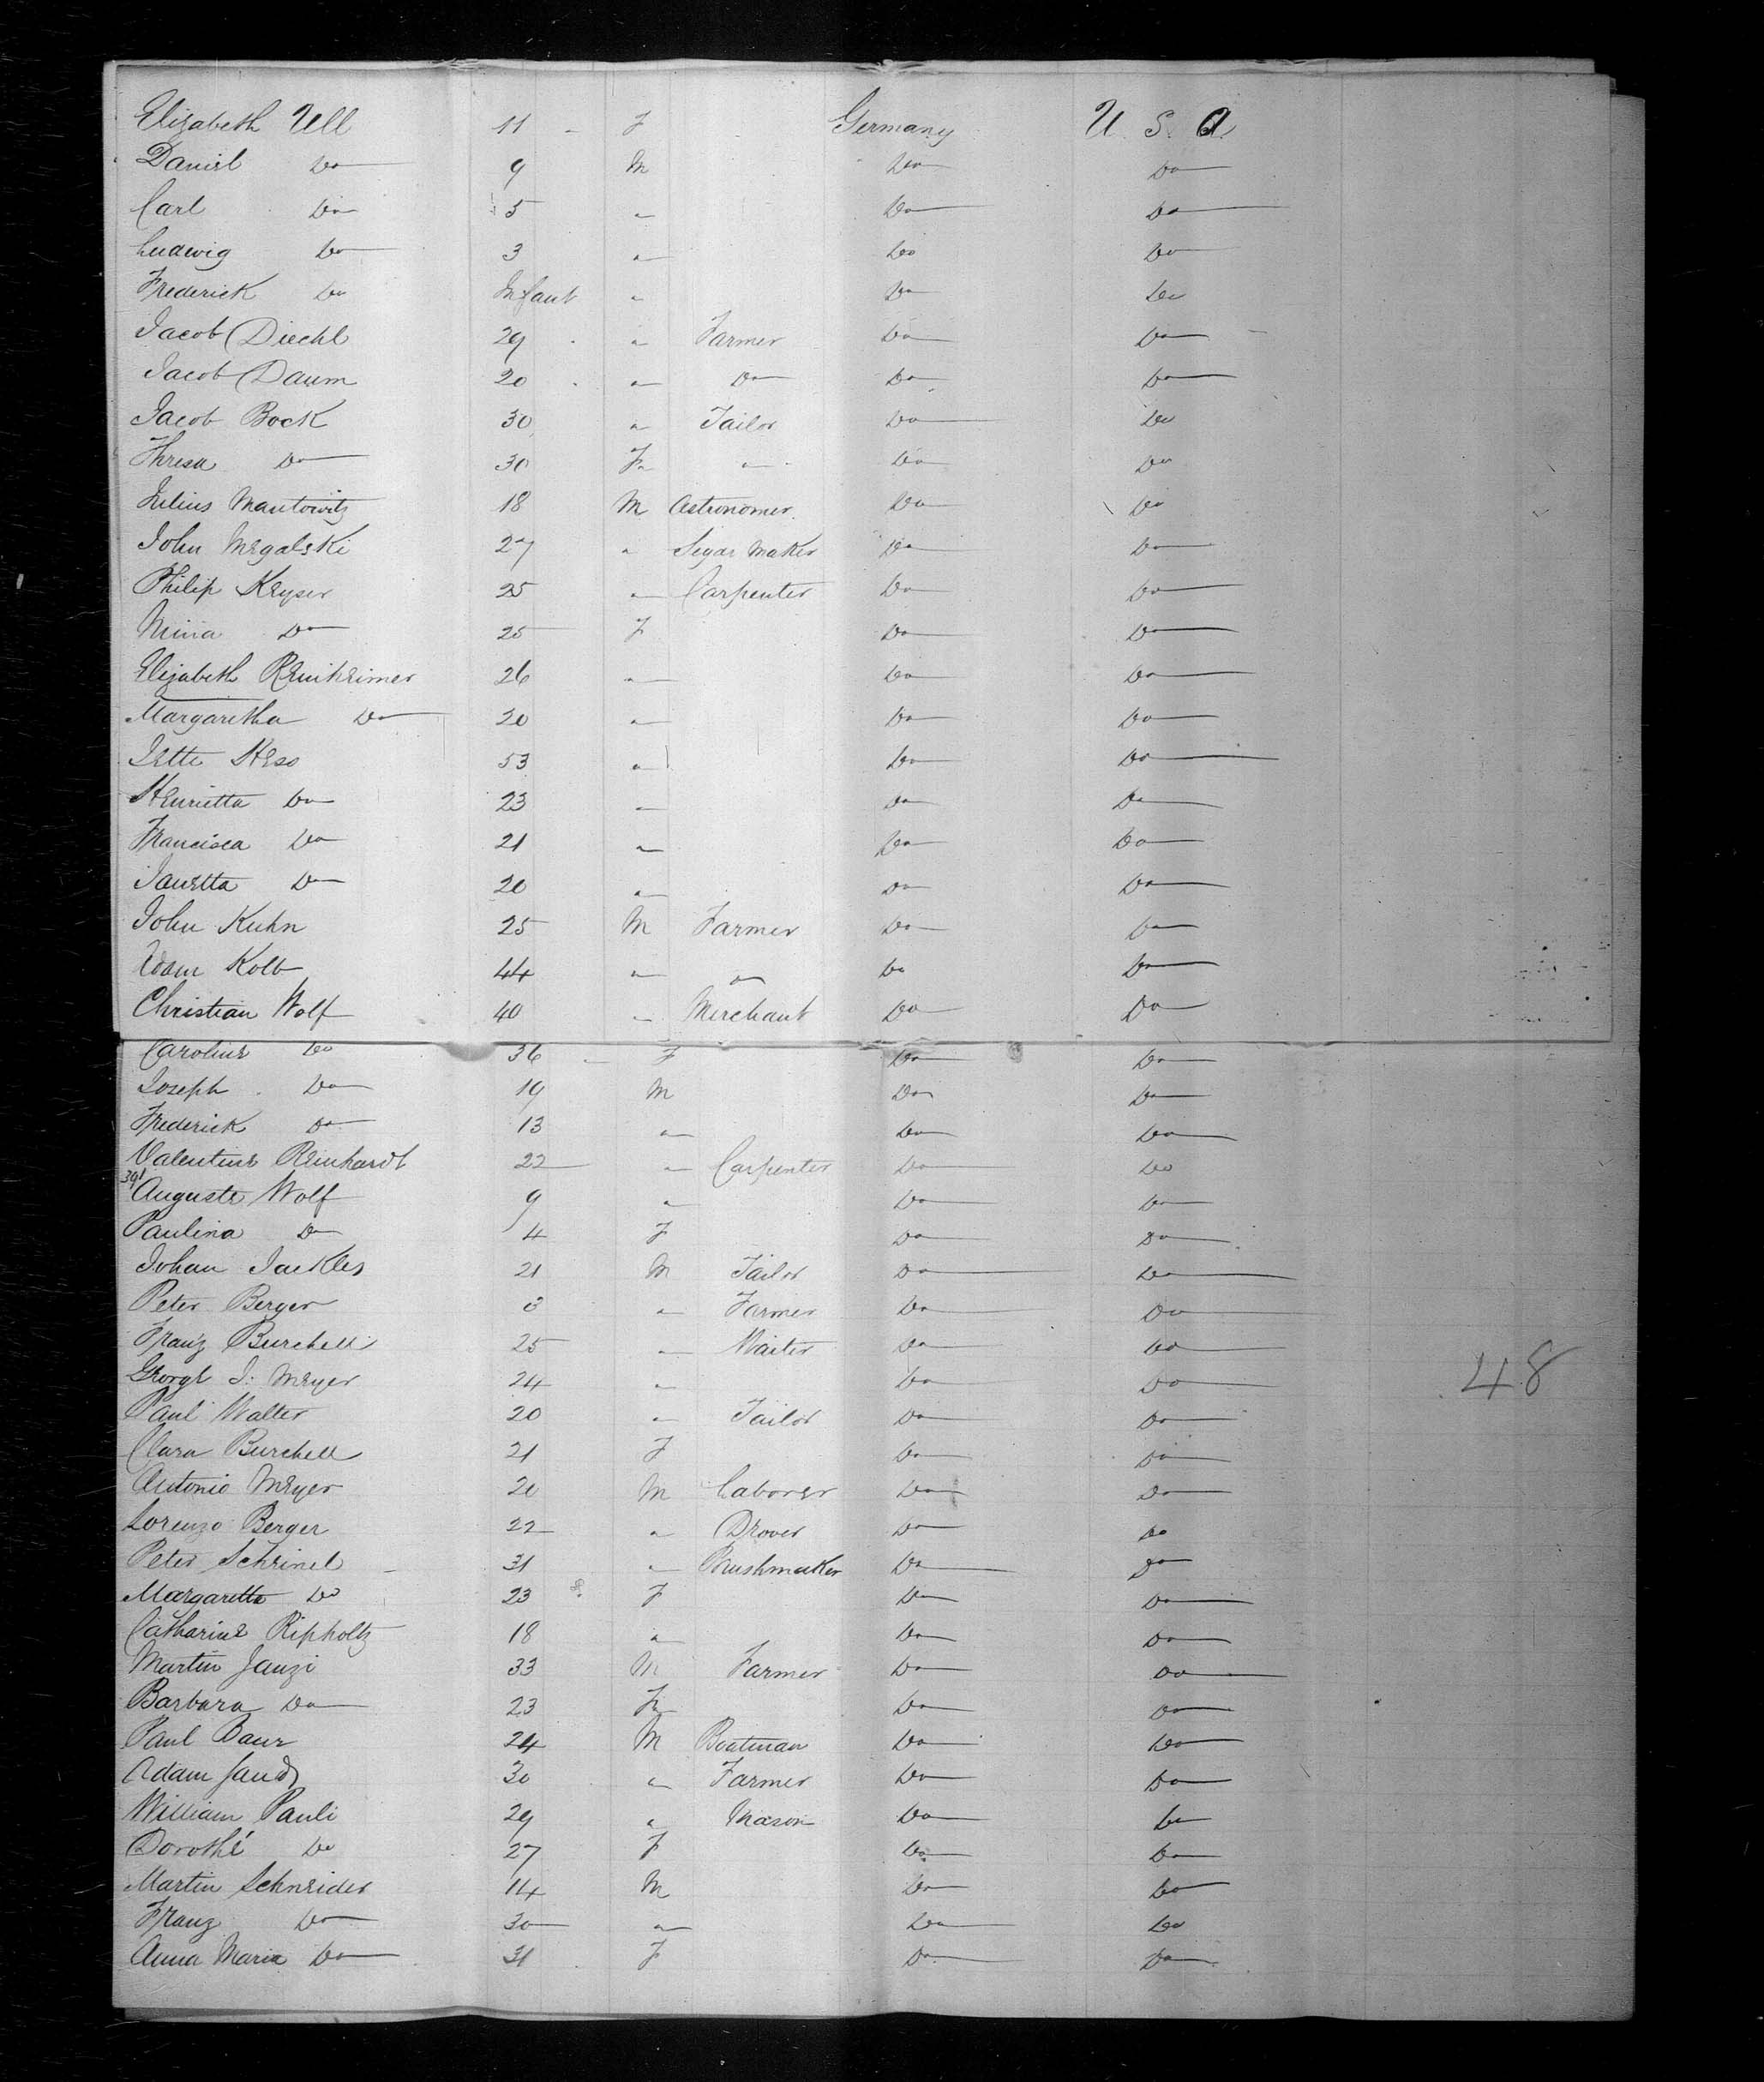 Elizabeth Ull 11 - F Germany U. S. A.
Daniel Do 9 M Do Do
Carl Do 5 " Do Do
Ludwig Do 3 " Do Do
Frederick Do Infant " Do Do
Jacob Diechl 29 " Farmer Do Do
Jacob Daum 20 " Do Do Do
Jacob Bock 30 " Tailor Do Do
Thresa Do 30 F " Do Do
Julius Mantowitz 18 M Astronomer Do Do
John Megalski 27 " Segar Maker Do Do
Philip Keyser 25 " Carpenter Do Do
Mina Do 25 F Do Do
Elizabeth Reinheimer 26 " Do Do
Margaretha Do 20 " Do Do
Jette Hess 53 " Do Do
Henrietta Do 23 " Do Do
Francisca Do 21 " Do Do
Janetta Do 20 " Do Do
John Kuhn 25 M Farmer Do Do
Adam Kolb 44 " " Do Do
Christian Wolf 40 " Merchant Do Do
Caroline Do 36 - F Do Do
Joseph Do 19 M Do Do
Frederick Do 13 " Do Do
Valentine Reinhardt 22 " Carpenter Do Do
391 Auguste Wolf 9 " Do Do
Paulina Do 4 F Do Do
Johan Jackles 21 M Tailor Do Do
Peter Berger " Farmer Do Do
Franz Burchell 25 " Waiter Do Do
George J. Meyer 24 " Do Do
48
Paul Walter 20 " Tailor Do Do
Clara Burchell 21 F Do Do
Antonio Meyer 20 M Laborer Do Do
Lorenzo Berger 22 " Drover Do Do
Peter Schrinel 31 " Brushmaker Do Do
Margaretta Do 23 F Do Do
Catharine Ripholtz 18 " Do Do
Martin Janzi 33 M Farmer Do Do
Barbara Do 23 F Do Do
Paul Baur 24 M Boatman Do Do
Adam 30 " Farmer Do Do
William Pauli 29 " Mason Do Do
Dorothé Do 27 F Do Do
Martin Schneider 14 M Do Do
Franz Do 30 " Do Do
Anna Maria Do 31 F Do Do